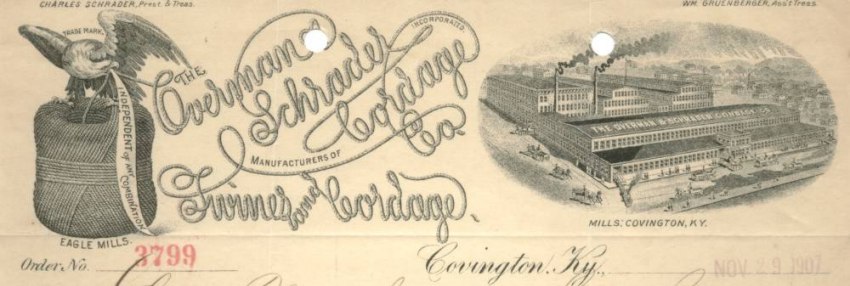 CHARLES SCHRADER, Prest. & Treas.
WM. GRUENBERGER, Ass't Treas.
TRADE MARK.
INDEPENDENT OF ANY COMBINATION
EAGLE MILLS.
THE
Overman &
Schrader
Cordage
Co.
INCORPORATED.
MANUFACTURERS OF
Twines and Cordage.
THE OVERMAN & SCHRADER CORDAGE CO.
MILLS, COVINGTON, KY.
Order No. 3799
Covington, Ky., NOV